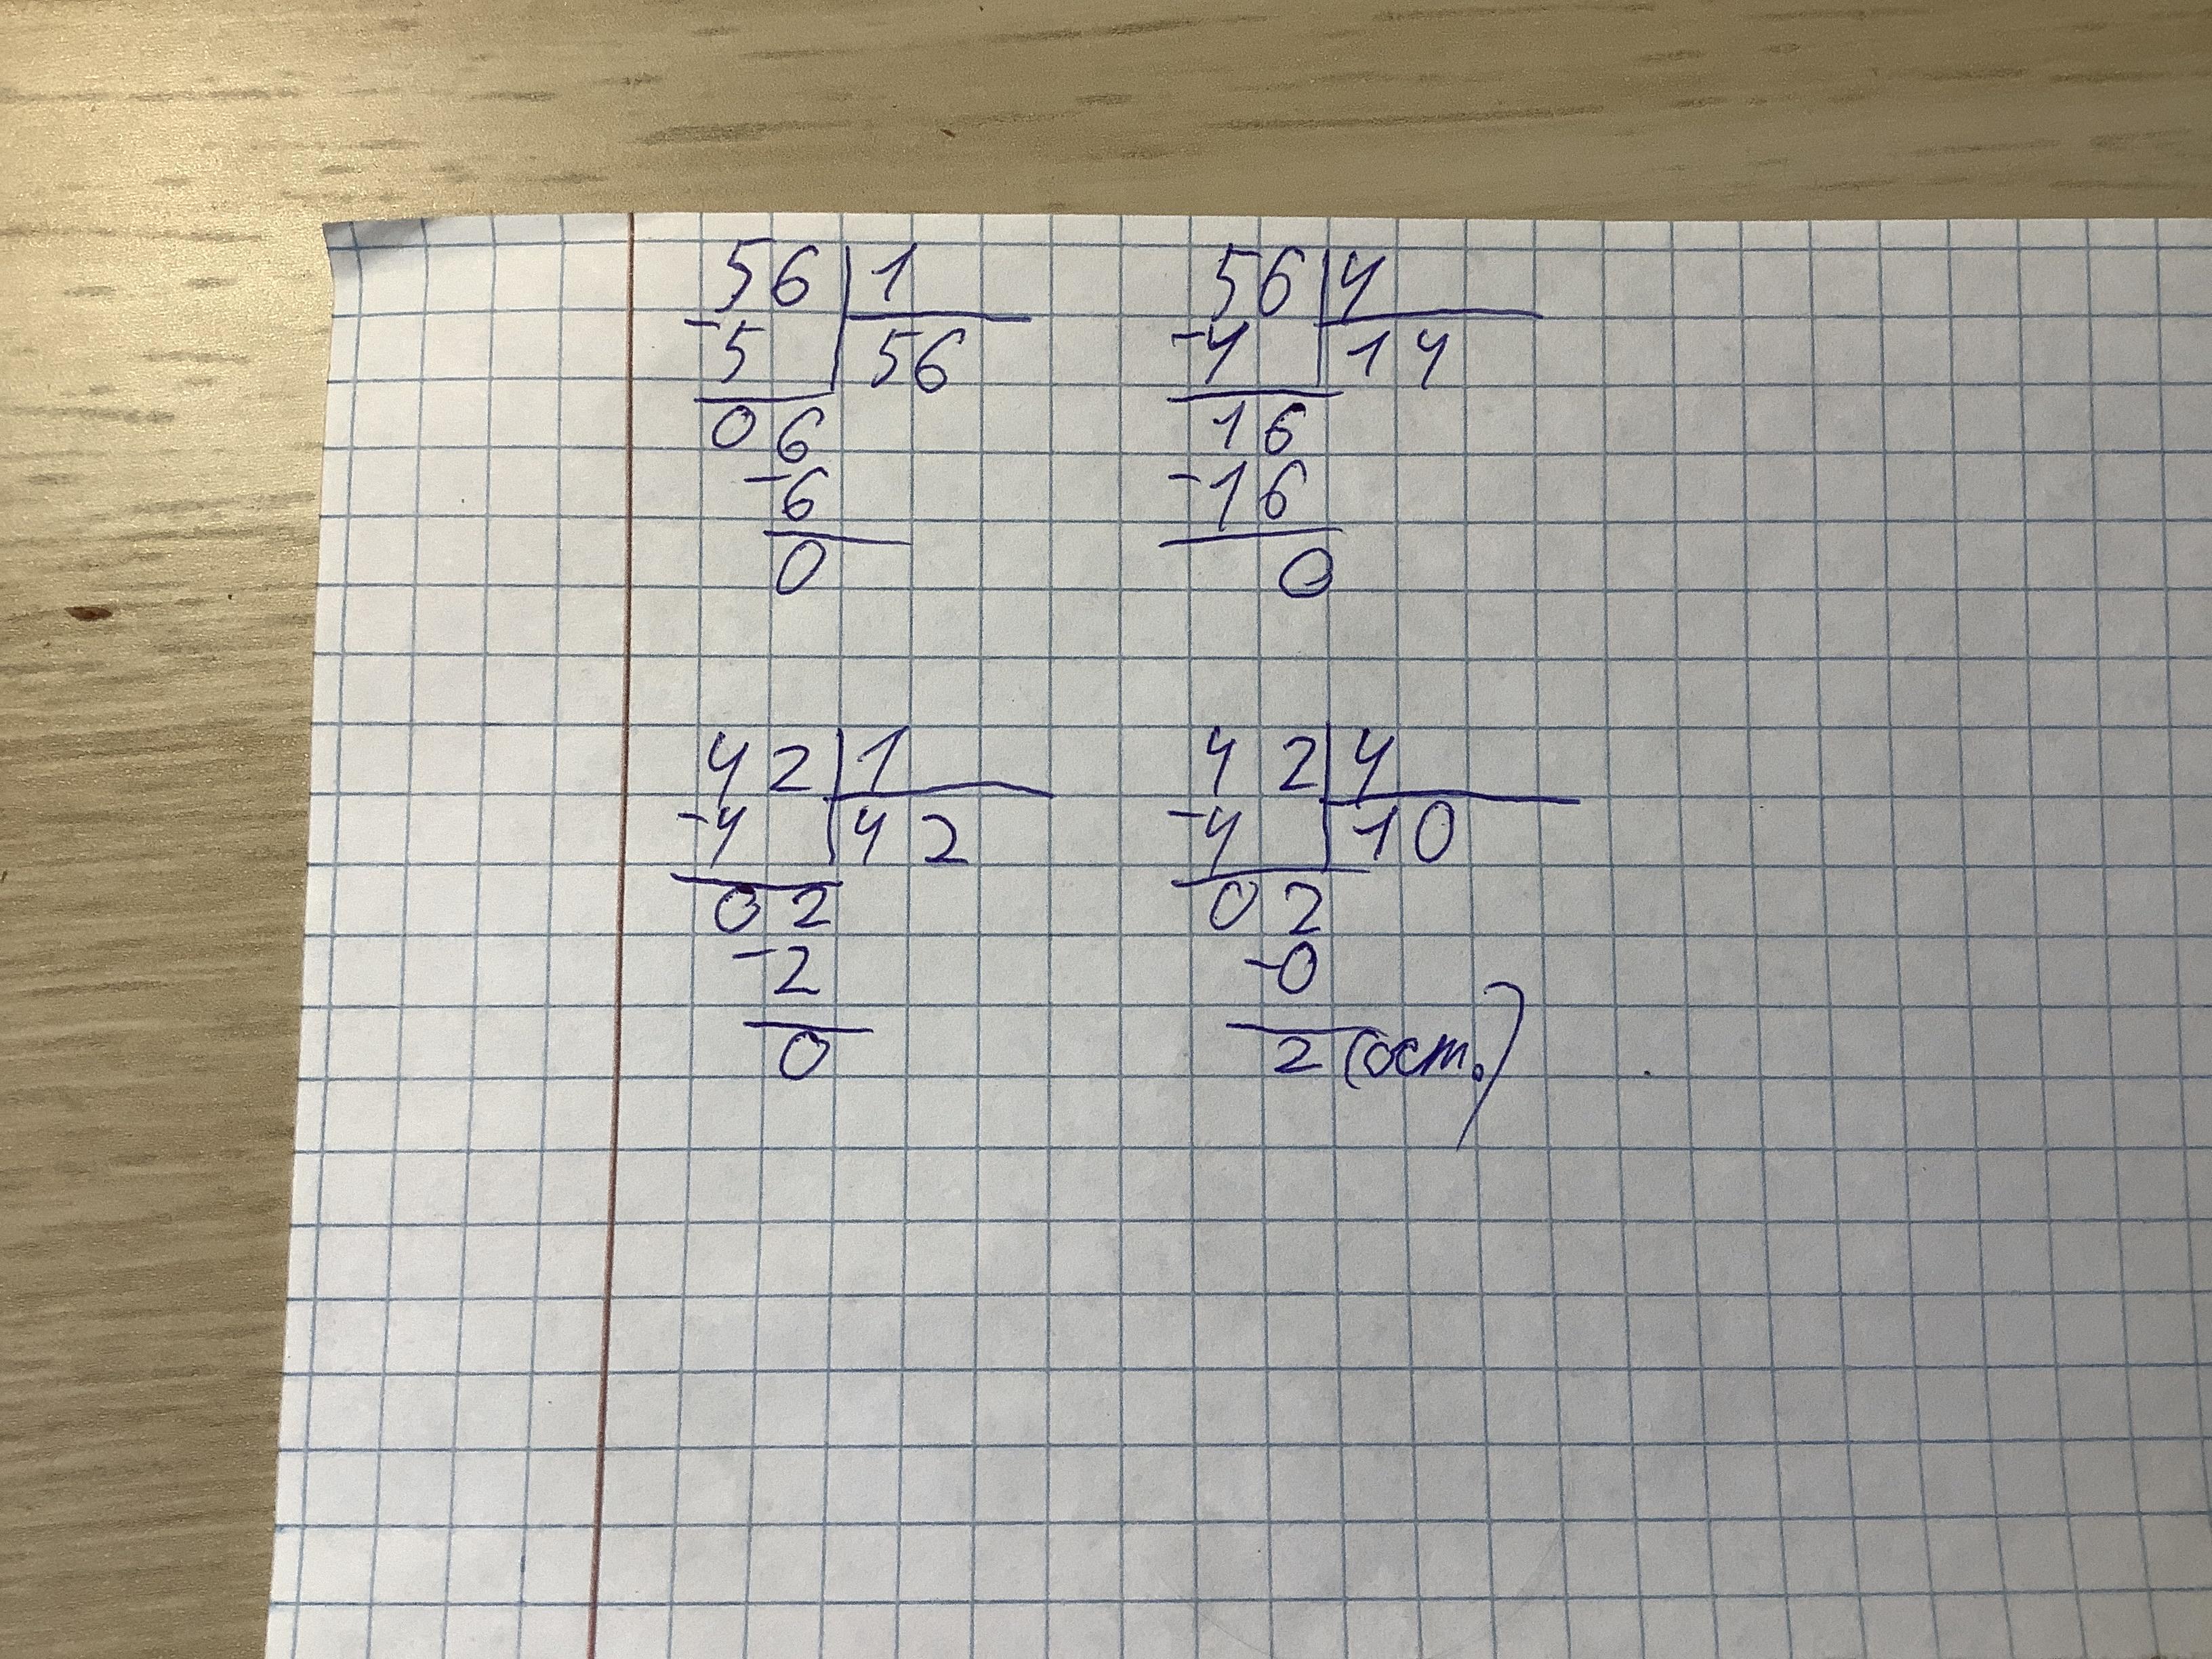 56 1
-5 56
06
-6
0
56 4
-4 14
16
-16
0
42 1
-4 42
02
-2
0
42 4
-4 10
02
-0
2 (ост.)